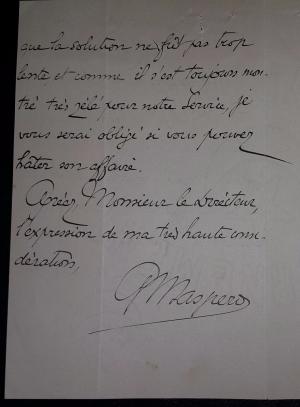 que la solution ne fût pas trop
lente, et comme il s'est toujours mon-
tré très zélé pour notre Service, je
vous serai obligé si vous pouvez
hâter son affaire.
Agréez, Monsieur le Directeur,
l'expression de ma très haute consi-
dération,
G Maspero